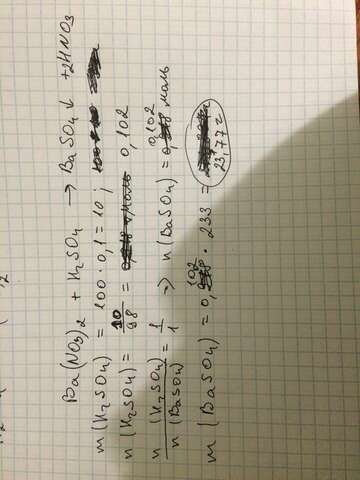 Ba(NO3)2 + H2SO4 → BaSO4↓ + 2HNO3
m(H2SO4) = 100 · 0,1 = 10 ;
n(H2SO4) = 10/98 = 0,102
n(H2SO4)/n(BaSO4) = 1/1 ⇒ n(BaSO4) = 0,102 моль
m(BaSO4) = 0,102 · 233 = 23,77 г